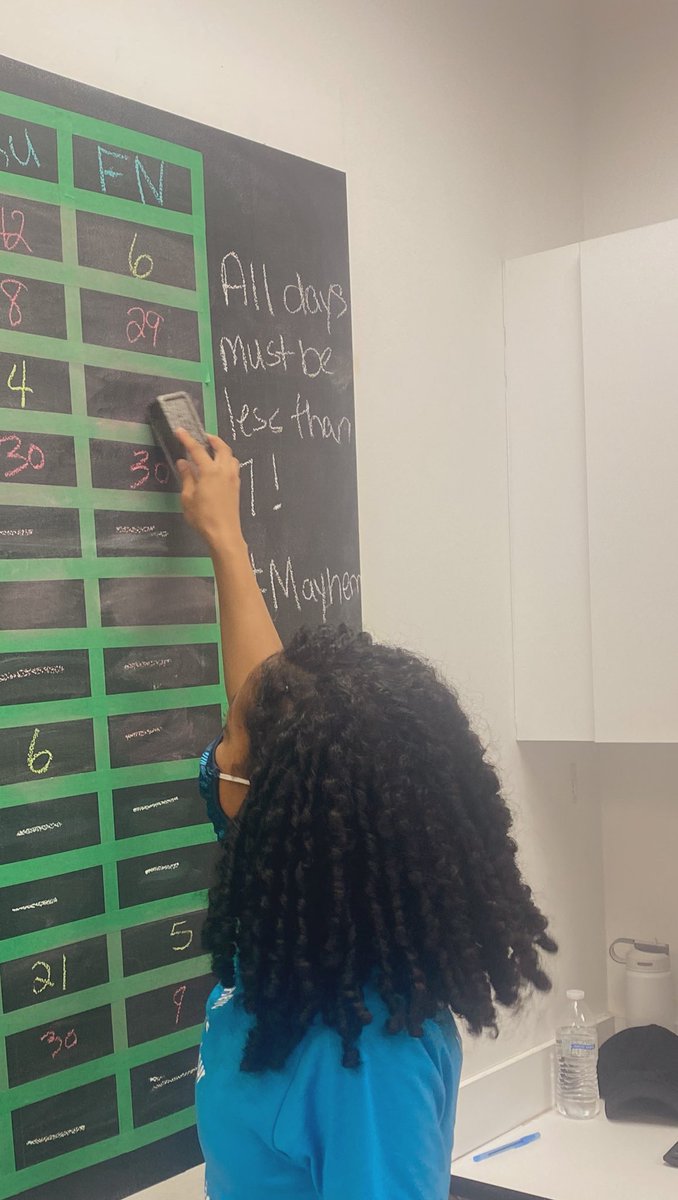 FN
12 6
8 29
4
30 30
6
5
21
9
30
All days
must be
less than
7!
Mayhem